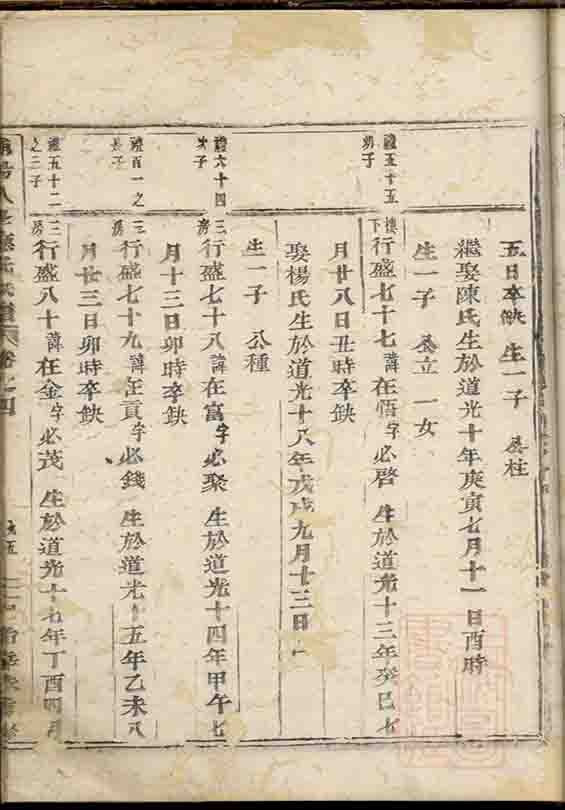 五日卒缺 生一子 柱
繼娶陳氏生於道光十年庚寅七月十一日酉時
生一子 立 一女
禮五十五
弟子
樓下行盛七十七諱在悟字必啓 生於道光十三年癸巳七
月廿八日丑時卒缺
娶楊氏生於道光十八年戊戌九月十三日
生一子 公種
禮六十四
次子
三房行盛七十八諱在富字必聚 生於道光十四年甲午七
月十三日卯時卒缺
禮百一之
長子
三房行盛七十九諱在貢字必錢 生於道光十五年乙未八
月廿三日卯時卒缺
禮五十二
之三子
三房行盛八十諱在金字必茂 生於道光十七年丁酉四月
卷之四